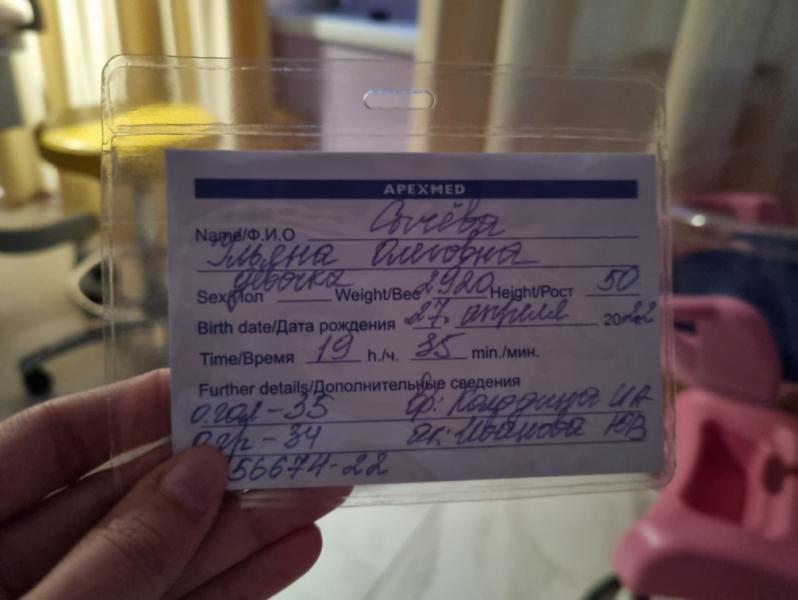 APEXMED
Name/Ф.И.О Сычёва
Ульяна Олеговна
девочка
Sex/Пол Weight/Вес 2920 Height/Рост 50
Birth date/Дата рождения 27. апреля 2022
Time/Время 19 h./ч. 35 min./мин.
Further details/Дополнительные сведения
о.гол-35 ИА
о.гр-34 ак: Иванова ЮВ
56674-22